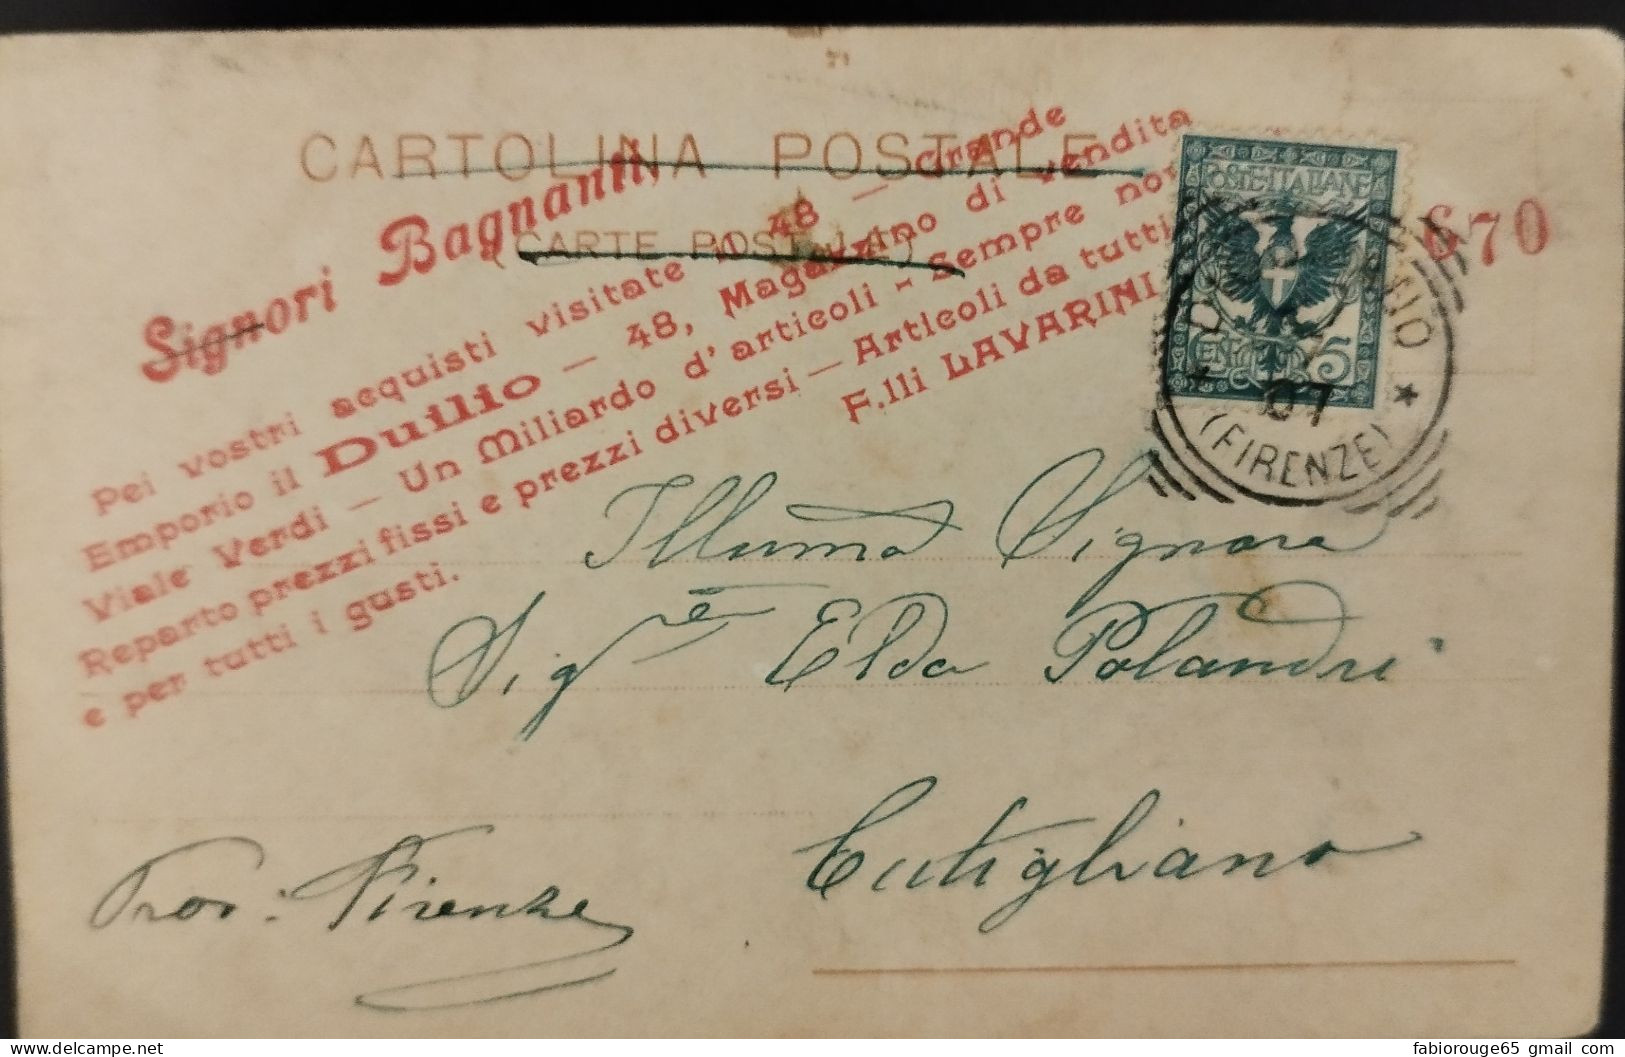 CARTOLINA POSTALE
(CARTE POSTALE)
Signori Bagnanti,
Pei vostri acquisti visitate il 48 — Grande
Emporio il Duilio — 48, Magazzino di vendita
Viale Verdi — Un Miliardo d'articoli - Sempre
Reparto prezzi fissi e prezzi diversi — Articoli da tutti
e per tutti i gusti.
F.lli LAVARINI
670
POSTE ITALIANE
CENT 5
07
(FIRENZE)
Illuma Signora
Sig.ra Elda Polandri
Cutigliano
Prov: Firenze
fabiorouge65 gmail com